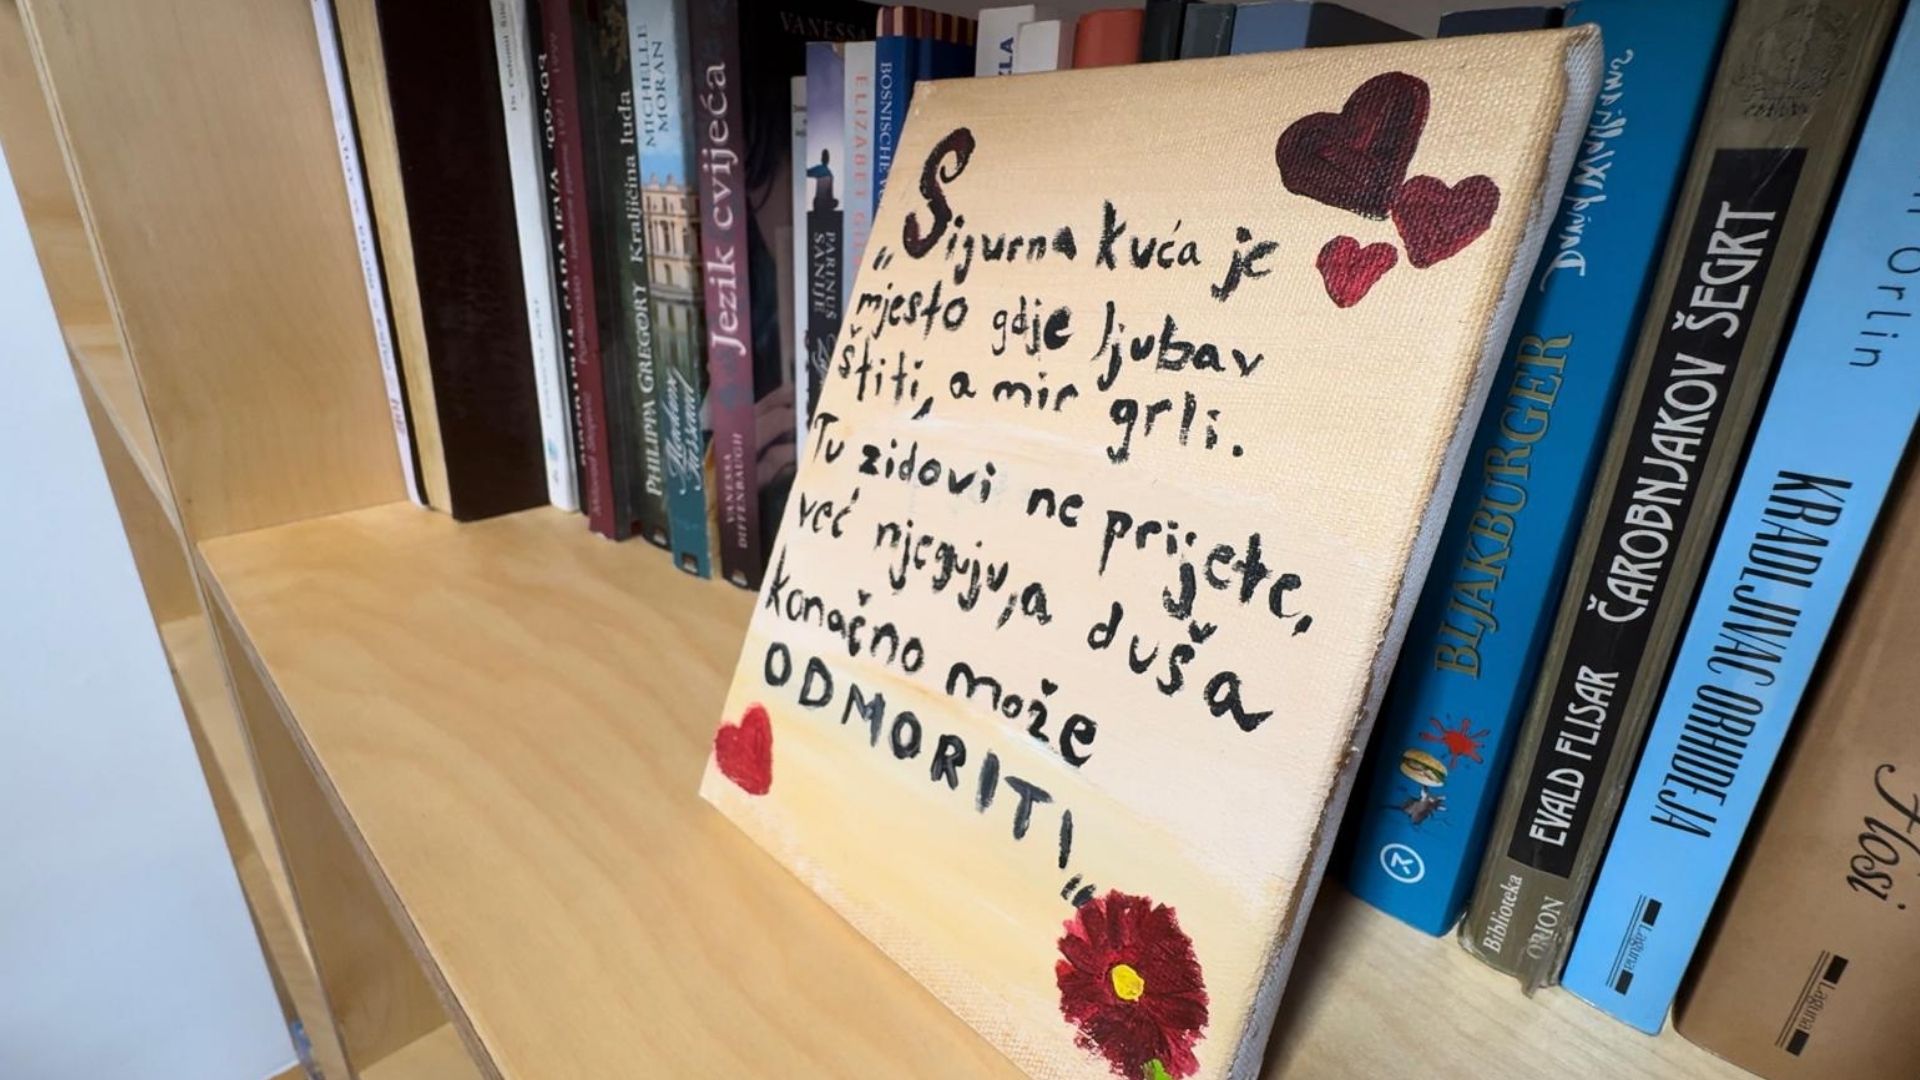 MICHELLE MORAN
Madam Tussaud
PHILIPPA GREGORY Kraljičina luda
VANESSA DIFFENBAUGH
Jezik cvijeća
VANESSA
PARINUŠ SANIJI
BOSNISCHE
„Sigurna kuća je
mjesto gdje ljubav
štiti, a mir grli.
Tu zidovi ne prijete,
već njeguju,a duša
konačno može
ODMORITI„
BLJAKBURGER
EVALD FLISAR ČAROBNJAKOV ŠEGRT
Biblioteka
ORION
KRADLJIVAC ORHIDEJA
orlin
Laguna
Hosi
Laguna